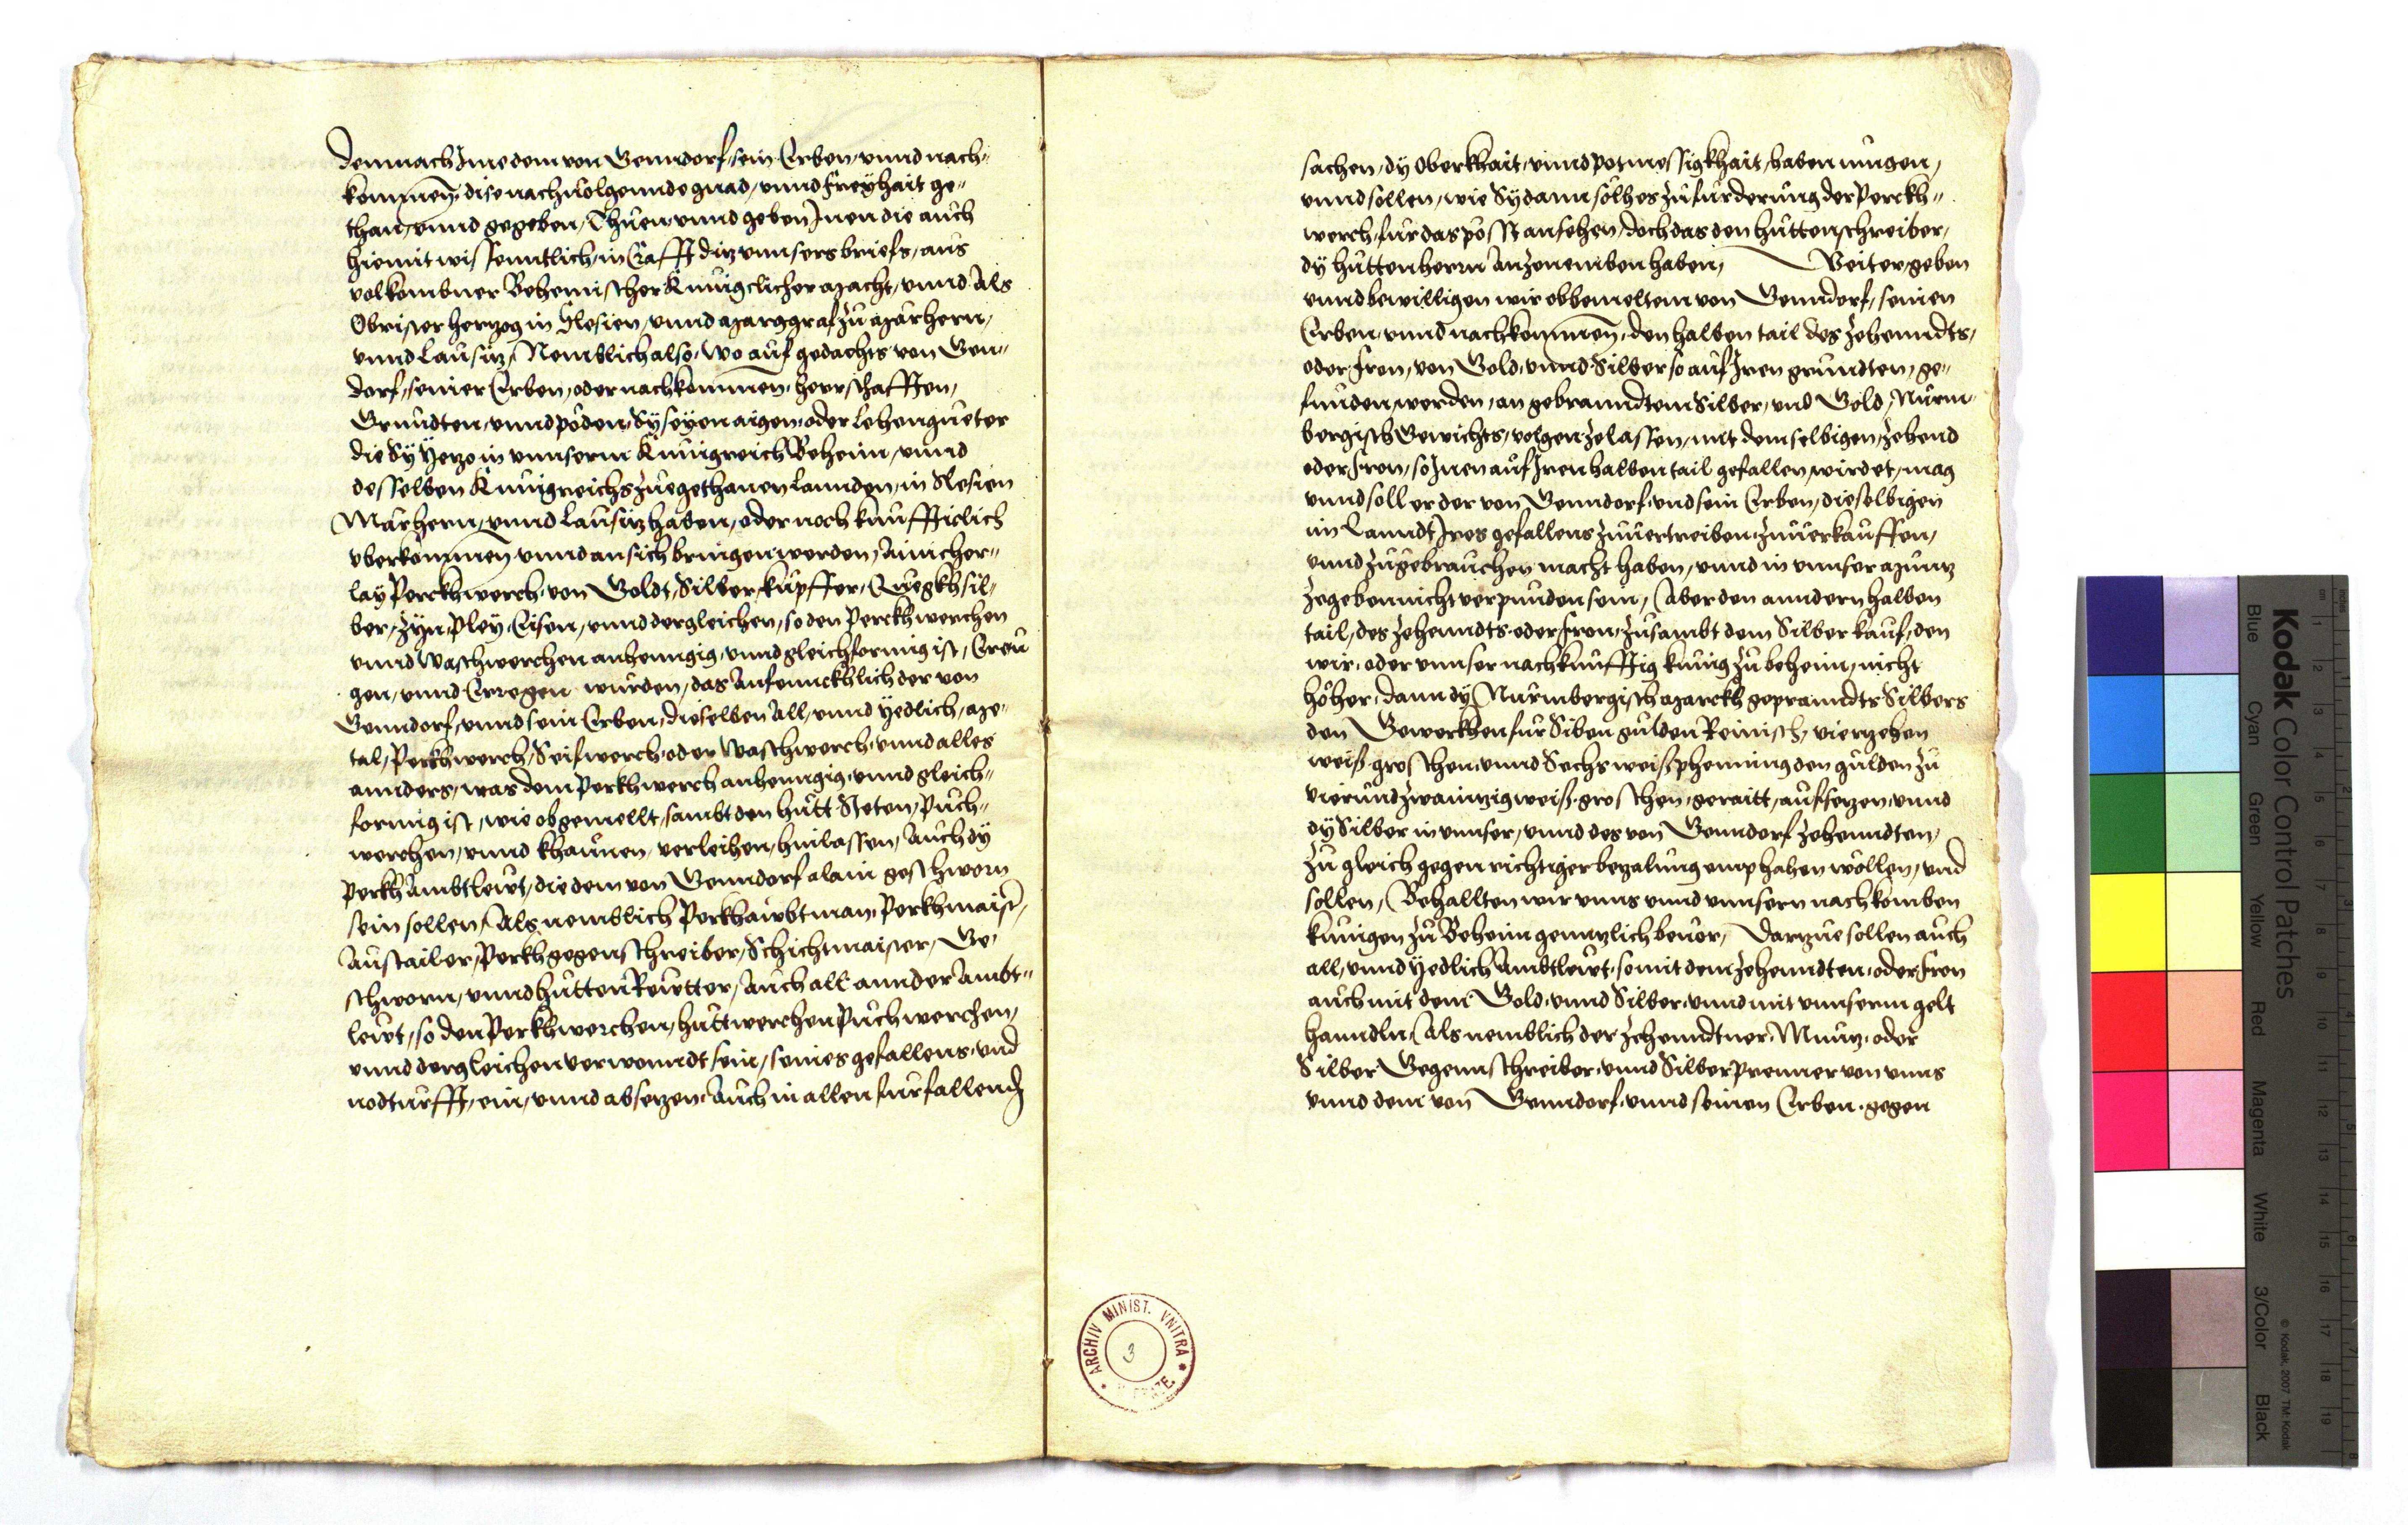 demnach Ime dem von Genndorf, sein Erben, vnnd nach-
kommen, dise nachuolgennde gnad, vnnd freyhait ge-
than, vnnd gegeben, Thuen vnnd geben Inen die auch
hiemit wissenntlich, in Crafft ditz vnnsers briefs, aus
volkombner Behemischer Kunigclicher macht, vnnd Als
Obrister hertzog in Slesien, vnnd Marggraf zu Marhern,
vnnd Lausitz, Nemblich also, Wo auf gedachts von Gen-
dorf, seiner Erben, oder nachkommen, herrschafften,
Grundten, vnnd pöden, Sy seyen aigen, oder Lehengueter
die Sy Yetzo in vnnserm Kunigreich Behein, vnnd
desselben Kunigreichs zuegethanen Lannden, in Slesien
Marhern, vnnd Lausitz haben, oder noch kunffticlich
vberkommen, vnnd an sich bringen werden, Ainicher-
lay Perckhwerch, von Goldt, Silber, kupffer, Quegkhsil-
ber, Zyn, Pley, Eisen, vnnd dergleichen, so den Perckhwerchen
vnnd Waschwerchen anhenngig, vnnd gleichformig ist, Ereu
gen, vnnd Erregen wurden, das Anfenncklich der von
Genndorf, vnnd sein Erben, dieselben All, vnnd Yedlich, me-
tal, Perkhwerch, Seifwerch, oder Waschwerch, vnnd alles
annders, was dem Perkhwerch anhenngig, vnnd gleich-
formig ist, wie obgemellt, sambt den hutt Steten, Puch-
werchen, vnnd khauen, verleihen, hinlassen, Auch dy
Perkh Ambtlewt, die dem von Genndorf alain geschworn
sein sollen, Als nemblich Perkhawbtman, Perkhmaister,
Austailer, Perkhgegenschreiber, Schichtmaister, Ge-
schworn, vnnd hutten Rewtter, Auch all annder Ambt-
lewt, so den Perkhwerchen, huttwerchen Puchwerchen,
vnnd dergleichen verwonndt sein, seines gefallens, vnd
nodturfft, ein, vnnd absetzen, Auch in allen furfallenden
sachen, dy Oberkhait, vnnd potmessigkhait, haben mugen,
vnnd sollen, wie Sy dann solhes zu furderung der Perckh-
werch, fur das posst ansehen, doch das den huttenschreiber,
dy huttenherrn Anzenemben haben, Weiter, geben
vnnd bewilligen wir obbemeltem von Genndorf, seinen
Erben, vnnd nachkommen, den halben tail des zehenndts,
oder fron, von Gold, vnnd Silber so auf Iren grundten, ge-
funden, werden, an gebranndtem Silber, vnd Gold, Nurm-
bergisch Gewichts, volgen zelassen, mit demselbigen, zehend
oder fron, so Inen auf Iren halben tail gefallen, wirdet, mag
vnnd soll er der von Genndorf, vnd sein Erben, dieselbigen
im Lanndt Ires gefallens zuuertreiben, zuuerkauffen,
vnnd zugebrauchen macht haben, vnnd in vnnser Muntz
zegeben nicht verpunden sein, Aber den anndern halben
tail, des zehenndts, oder fron, zusambt dem Silber kauf, den
wir, oder vnnser nachkunfftig kunig zu behein, nicht
höher, dann dy Nurmbergisch Marckh gepranndts Silbers
den Gewerkhen fur Siben gulden Reinisch, vierzehen
weiß groschen, vnnd Sechs weiß phenning den gulden zu
vierundzwaintzig weiß groschen, geraitt, aufsetzen, vnnd
dy Silber in vnnser, vnnd des von Genndorf zehenndten,
zu gleich gegen richtiger bezalung emphahen wöllen, vnd
sollen, Behallten wir vnns vnnd vnnsern nachkomben
kunigen zu Behein genntzlich beuor, Dartzue sollen auch
all, vnnd Yedlich Ambtlewt, so mit dem zehenndten, oder fron
auch mit dem Gold, vnnd Silber, vnnd mit vnnserm gelt
hanndln, Als nemblich der zehenndtner, Munz, oder
Silber Gegennschreiber, vnnd Silberprenner von vnns
vnnd dem von Genndorf, vnnd seinen Erben, gegen
ARCHIV MINIST. VNITRA
3
Kodak Color Control Patches
Blue Cyan Green Yellow Red Magenta White 3/Color Black
© Kodak, 2007 TM: Kodak